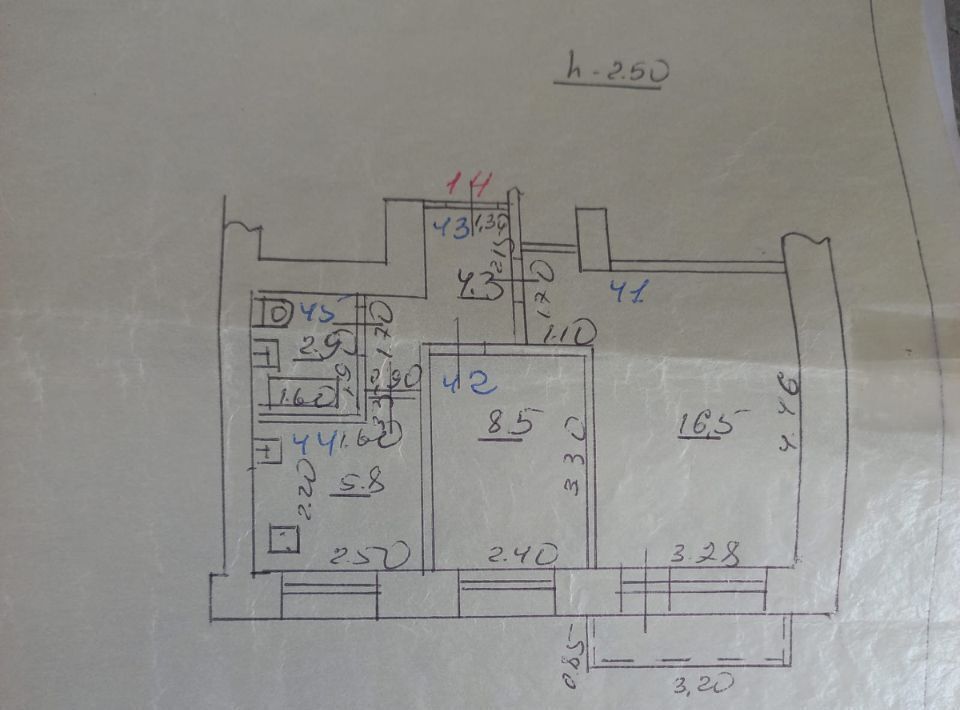 h - 2.50
14
43
1,30
2,15
4.3
1.70
41
1.10
45
2.90
1.70
1.60
42
8.5
3 30
16,5
4 46
44
1.60
5.8
2.20
2.50
2.40
3.28
0.85
3,20